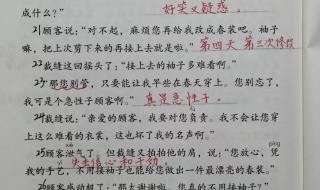 成什么？” 好笑又疑惑。
21顾客说：“对不起，麻烦您再给我改成春装吧。袖子
嘛，把上次剪下来的再接上去就是啦。” 第四天 第三次修改
22裁缝这回摇头了：“接上去的袖子多难看啊。”
23“那您别管，只要能让我早些在春天穿上。您别忘了，
我可是个急性子顾客啊。” 真是急性子。
24裁缝说：“亲爱的顾客，我要对您负责。我不会让您穿
上这么难看的衣裳，这也坏了我的名声啊。”
xiè píng
25顾客泄气了。但裁缝又拍拍他的肩，说：“您放心，凭
我的手艺，不用接袖子也能给您做出一件最漂亮的春装。”
失去信心和干劲
26顾客感动极了：“那太谢谢啦，您真的不用接袖子？”